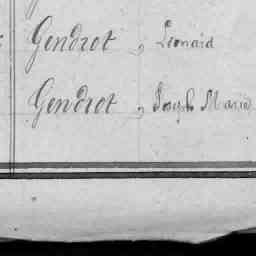 Gendrot, Léonard
Gendrot, Joseph Marie